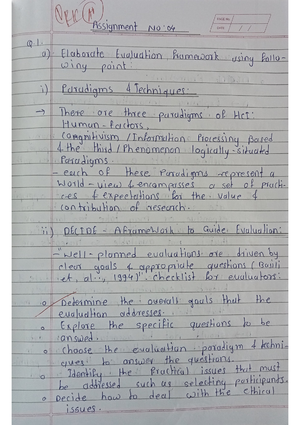 Assignment No: 04
Q.1.
a) Elaborate Evaluation Framework using follo-
wing point:
i) Paradigms & Techniques:
→ There are three paradigms of HCI:
Human-Factors,
Cognitivism / Information Processing Based
& the third / Phenomenon logically-situated
Paradigms.
- each of these Paradigms represent a
World-view & encompasses a set of pract-
ices & expectations for the value &
contribution of research.
ii) DECIDE - A framework to Guide Evaluation:
- "Well-planned evaluations are driven by
clear goals & appropriate questions (Basili
et. al., 1994)". Checklist for evaluators:
Determine the overall goals that the
evaluation addresses.
Explore the specific questions to be
answered.
choose the evaluation paradigm & techni-
ques to answer the questions.
Identify the Practical issues that must
be addressed such as selecting participants.
Decide how to deal with the ethical
issues.